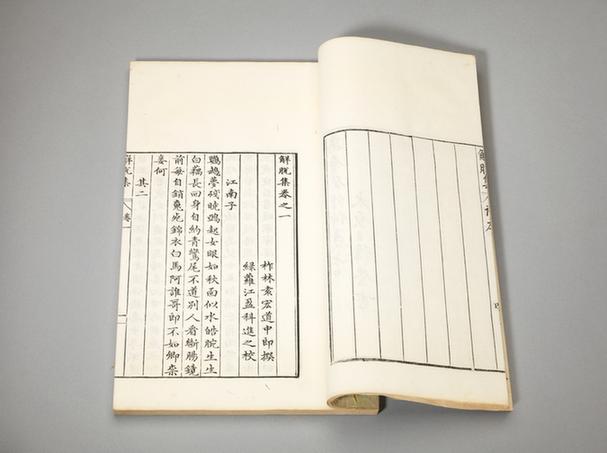 解脫集卷之一
柞林袁宏道中郎撰
綠蘿江盈科進之校
江南子
鸚鵡夢殘曉鴉起女眼如秋面似水皓腕生生
白藕長回身自約青鸞尾不道別人看斷腸鏡
前每自銷魂死錦衣白馬阿誰哥郎不如卿柰
妾何
其二
解脫集 卷一